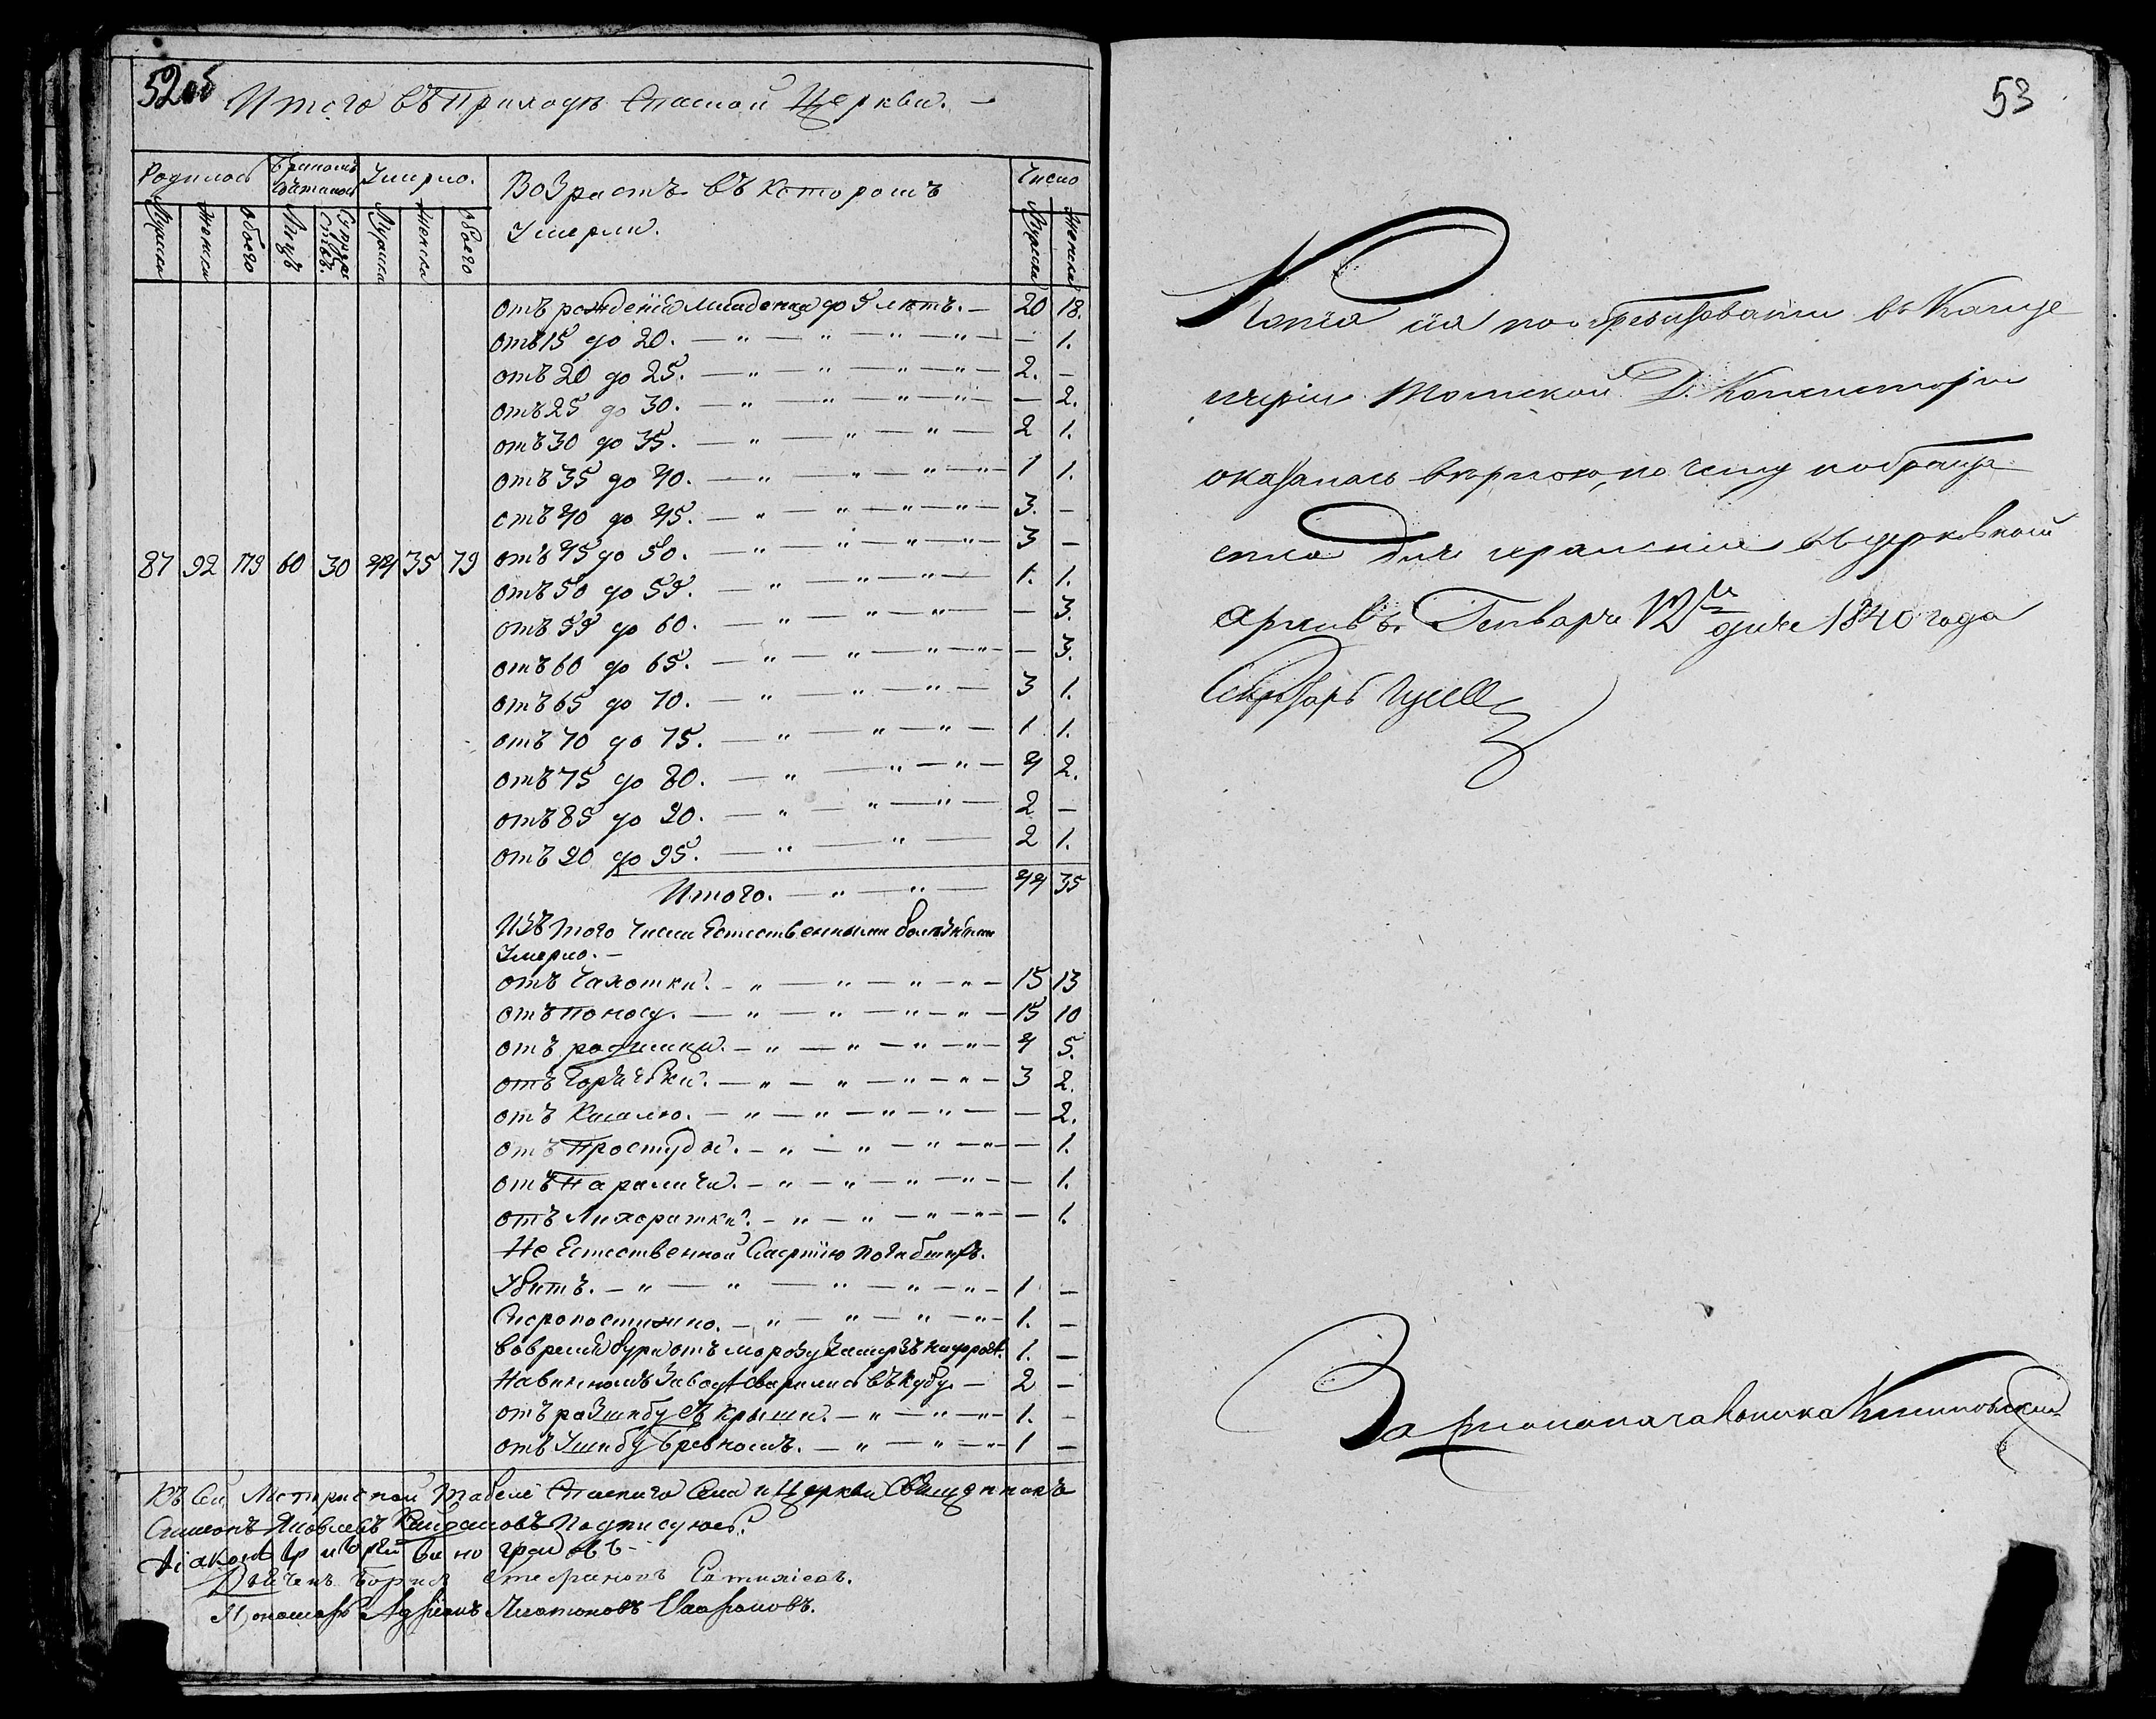 52 об
Итого въ Приходѣ Спаской Церкви. —
Родилось Бракомъ сочеталось Умерло. Возрастъ въ которомъ Умерли. Число
Мужска Женска Обоего Лицъ Супружествъ. Мужска Женска Обоего Мужска Женска
отъ рожденія младенца до 5 лѣтъ. — 20 18.
отъ 15 до 20. — „ — „ — „ — „ — — 1.
отъ 20 до 25. — „ — „ — „ — „ — 2. —
отъ 25 до 30. — „ — „ — „ — „ — — 2.
отъ 30 до 35. — „ — „ — „ — 2 1.
отъ 35 до 40. — „ — „ — „ — 1 1.
отъ 40 до 45. — „ — „ — „ — „ — 3. —
отъ 45 до 50. — „ — „ — „ — „ — 3 —
87 92 179 60 30 44 35 79
отъ 50 до 55. — „ — „ — „ — 1. 1.
отъ 55 до 60. — „ — „ — „ — — 3.
отъ 60 до 65. — „ — „ — „ — „ — — 3.
отъ 65 до 70. — „ — „ — „ — 3 1.
отъ 70 до 75. — „ — „ — „ — 1 1.
отъ 75 до 80. — „ — „ — „ — 4 2.
отъ 85 до 90. — „ — „ — „ — 2 —
отъ 90 до 95. — „ — „ — 2 1.
Итого. — „ — „ — 44 35
Изъ того числа Естественными болѣзньми
Умерло. —
отъ Чахотки. — „ — „ — „ — „ — 15 13
отъ Поносу. — „ — „ — „ — „ — 15 10
отъ родимца. — „ — „ — „ — „ — 4 5.
отъ Горячьки. — „ — „ — „ — „ — 3 2.
отъ Кашлю. — „ — „ — „ — „ — — 2.
отъ Простуды. — „ — „ — „ — „ — — 1.
отъ Параличи. — „ — „ — „ — „ — — 1.
отъ Лихоратки. — „ — „ — „ — „ — — 1.
Не Естественной Смертію погибшихъ.
Убитъ. — „ — „ — „ — „ — „ — 1 —
Скоропостижно. — „ — „ — „ — „ — 1. —
во время бури отъ морозу замерзъ 1. —
На винномъ Заводѣ сварились въ Кубу — 2 —
отъ разшибу съ крыши. — „ — „ — „ — 1. —
отъ Ушибу бревномъ. — „ — „ — „ — 1 —
Къ сей Метрической Табели Спаскаго Села и Церкви Священникъ
Симеонъ Яковлевъ подписуюсь.
Діаконъ Григорій Виноградовъ —
Дьячекъ Борисъ Стефановъ
Пономарь Адріанъ Платоновъ
53
Копія сія по обревизованіи въ Канце
ляріи Томской Д. Консисторіи
оказалась вѣрною, по чему и обраща
ется для храненія въ церковной
архивъ. Генваря 12го дня 1840 года
Секретарь
За Столоначальника